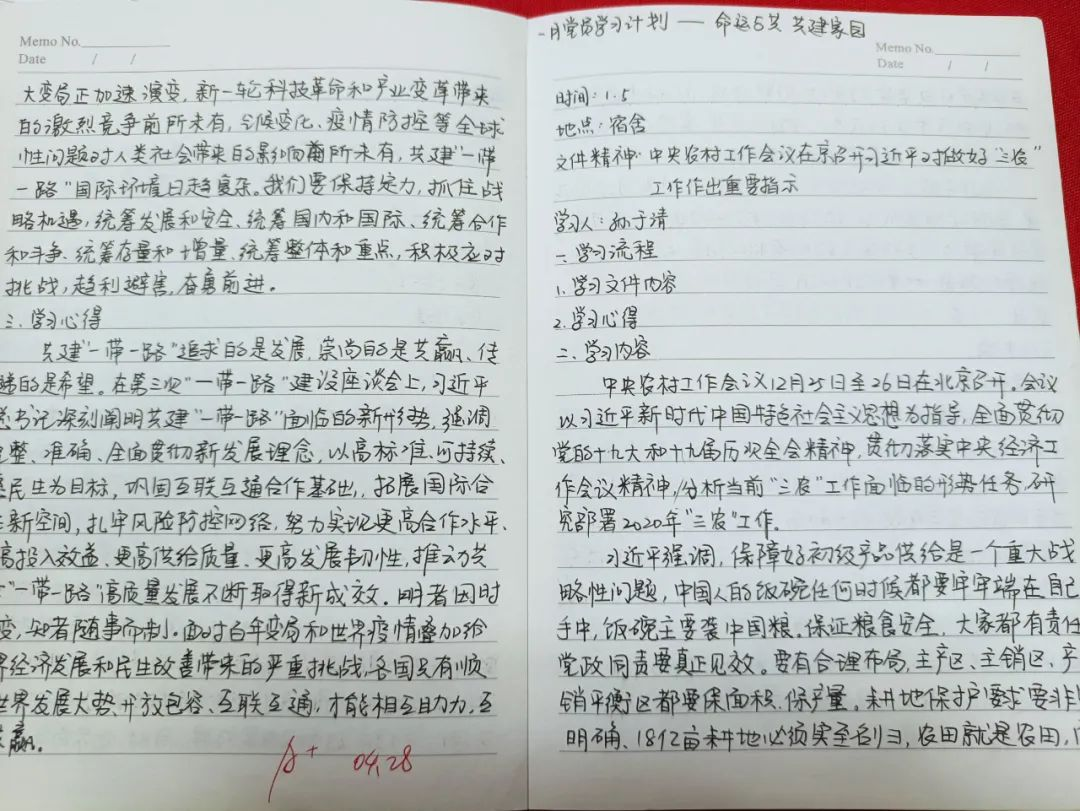 Memo No.
Date / /
大变局正加速演变,新一轮科技革命和产业变革带来
的激烈竞争前所未有,气候变化、疫情防控等全球
性问题对人类社会带来的影响前所未有,共建"一带
一路"国际环境日趋复杂。我们要保持定力,抓住战
略机遇,统筹发展和安全、统筹国内和国际、统筹合作
和斗争、统筹存量和增量、统筹整体和重点,积极应对
挑战,趋利避害,奋勇前进。
三.学习心得
共建"一带一路"追求的是发展,崇尚的是共赢、传
递的是希望。在第三次"一带一路"建设座谈会上,习近平
总书记深刻阐明共建"一带一路"面临的新形势,强调
完整、准确、全面贯彻新发展理念,以高标准、可持续、
惠民生为目标,巩固互联互通合作基础,拓展国际合
作新空间,扎牢风险防控网络,努力实现更高合作水平、
高投入效益、更高供给质量、更高发展韧性,推动共
"一带一路"高质量发展不断取得新成效。明者因时
变,知者随事而制。面对百年变局和世界疫情叠加给
界经济发展和民生改善带来的严重挑战,各国只有顺
世界发展大势,开放包容、互联互通,才能相互助力,互
共赢。
A+ 04,28
一月党员学习计划——命运与共 共建家园
Memo No.
Date / /
时间:1.5
地点:宿舍
文件精神:中央农村工作会议在京召开习近平对做好"三农"
工作作出重要指示
学习人:孙于清
一.学习流程
1.学习文件内容
2.学习心得
二.学习内容
中央农村工作会议12月25日至26日在北京召开。会议
以习近平新时代中国特色社会主义思想为指导,全面贯彻
党的十九大和十九届历次全会精神,贯彻落实中央经济工
作会议精神,分析当前"三农"工作面临的形势任务,研
究部署2020年"三农"工作。
习近平强调,保障好初级产品供给是一个重大战
略性问题,中国人的饭碗任何时候都要牢牢端在自己
手中,饭碗主要装中国粮。保证粮食安全,大家都有责任
党政同责要真正见效。要有合理布局,主产区、主销区、产
销平衡区都要保面积、保产量。耕地保护要求要非
明确、18亿亩耕地必须实至名归,农田就是农田,